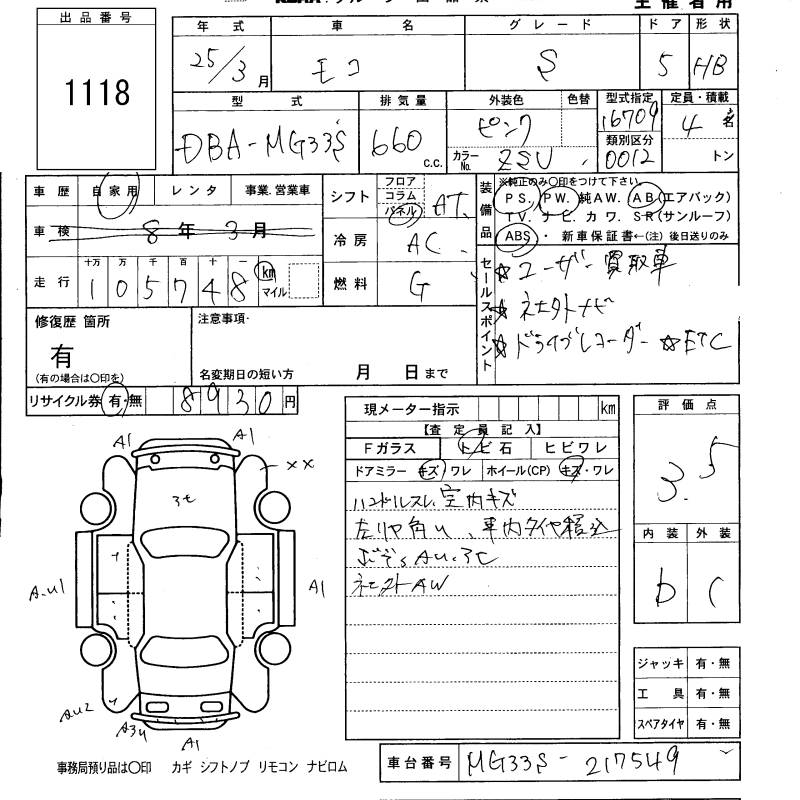 出品番号
1118
年式 車名 グレード ドア 形状
25/3月 モコ S 5 HB
型式 排気量 外装色 色替 型式指定 定員・積載
DBA-MG33S 660 c.c. ピンク 16709 4名
カラーNo. ZSU 類別区分 0012 トン
車歴 自家用 レンタ 事業.営業車
車検 8年3月
走行 十万 万 千 百 十 一
105748 km マイル
シフト フロア コラム パネル AT
冷房 AC
燃料 G
装備品 ※純正のみ〇印をつけて下さい。
PS. PW. 純AW. AB(エアバック)
TV. ナビ. カワ. SR(サンルーフ)
ABS・ 新車保証書←(注) 後日送りのみ
セールスポイント
☆ユーザー買取車
☆社外ナビ
☆ドライブレコーダー ☆ETC
修復歴 箇所
有
(有の場合は〇印を)
注意事項・
名変期日の短い方 月 日まで
リサイクル券 有・無 8930円
現メーター指示 km
【査定員記入】
Fガラス トビ石 ヒビワレ
ドアミラー キズ ワレ ホイール(CP) キズ・ワレ
ハンドルスレ、室内キズ
左リヤ角U、車内タイヤ積込
AU.3C
社外AW
評価点
3.5
内装 外装
b C
ジャッキ 有・無
工具 有・無
スペアタイヤ 有・無
A1 A1
××
A1
AU2
A3U
A1
事務局預り品は〇印 カギ シフトノブ リモコン ナビロム
車台番号 MG33S-217549